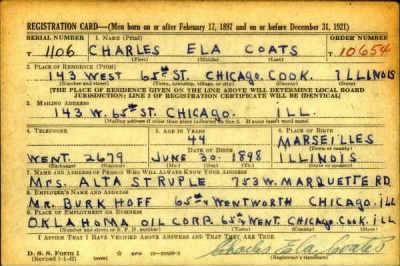 REGISTRATION CARD—(Men born on or after February 17, 1897 and on or before December 31, 1921)
SERIAL NUMBER 1. NAME (Print) ORDER NUMBER
T 1106 CHARLES ELA COATS 10654
(First) (Middle) (Last)
2. PLACE OF RESIDENCE (Print)
143 WEST 65TH ST. CHICAGO. COOK. ILLINOIS
[THE PLACE OF RESIDENCE GIVEN ON THE LINE ABOVE WILL DETERMINE LOCAL BOARD
JURISDICTION; LINE 2 OF REGISTRATION CERTIFICATE WILL BE IDENTICAL]
3. MAILING ADDRESS
143 W. 65TH ST. CHICAGO. ILL.
[Mailing address if other than place indicated on line 2. If same insert word same]
4. TELEPHONE 5. AGE IN YEARS 6. PLACE OF BIRTH
44 MARSEILLES
DATE OF BIRTH
WENT. 2679 JUNE 30. 1898 ILLINOIS
7. NAME AND ADDRESS OF PERSON WHO WILL ALWAYS KNOW YOUR ADDRESS
MRS. ALTA STRUPLE 753 W. MARQUETTE RD.
8. EMPLOYER'S NAME AND ADDRESS
MR. BURK HOFF 65TH WENTWORTH CHICAGO. ILL
9. PLACE OF EMPLOYMENT OR BUSINESS
OKLAHOMA OIL CORP. 65TH WENT. CHICAGO. COOK. ILL
I AFFIRM THAT I HAVE VERIFIED ABOVE ANSWERS AND THAT THEY ARE TRUE.
D. S. S. Form 1
(Revised 1-1-42)
Charles Ela Coats